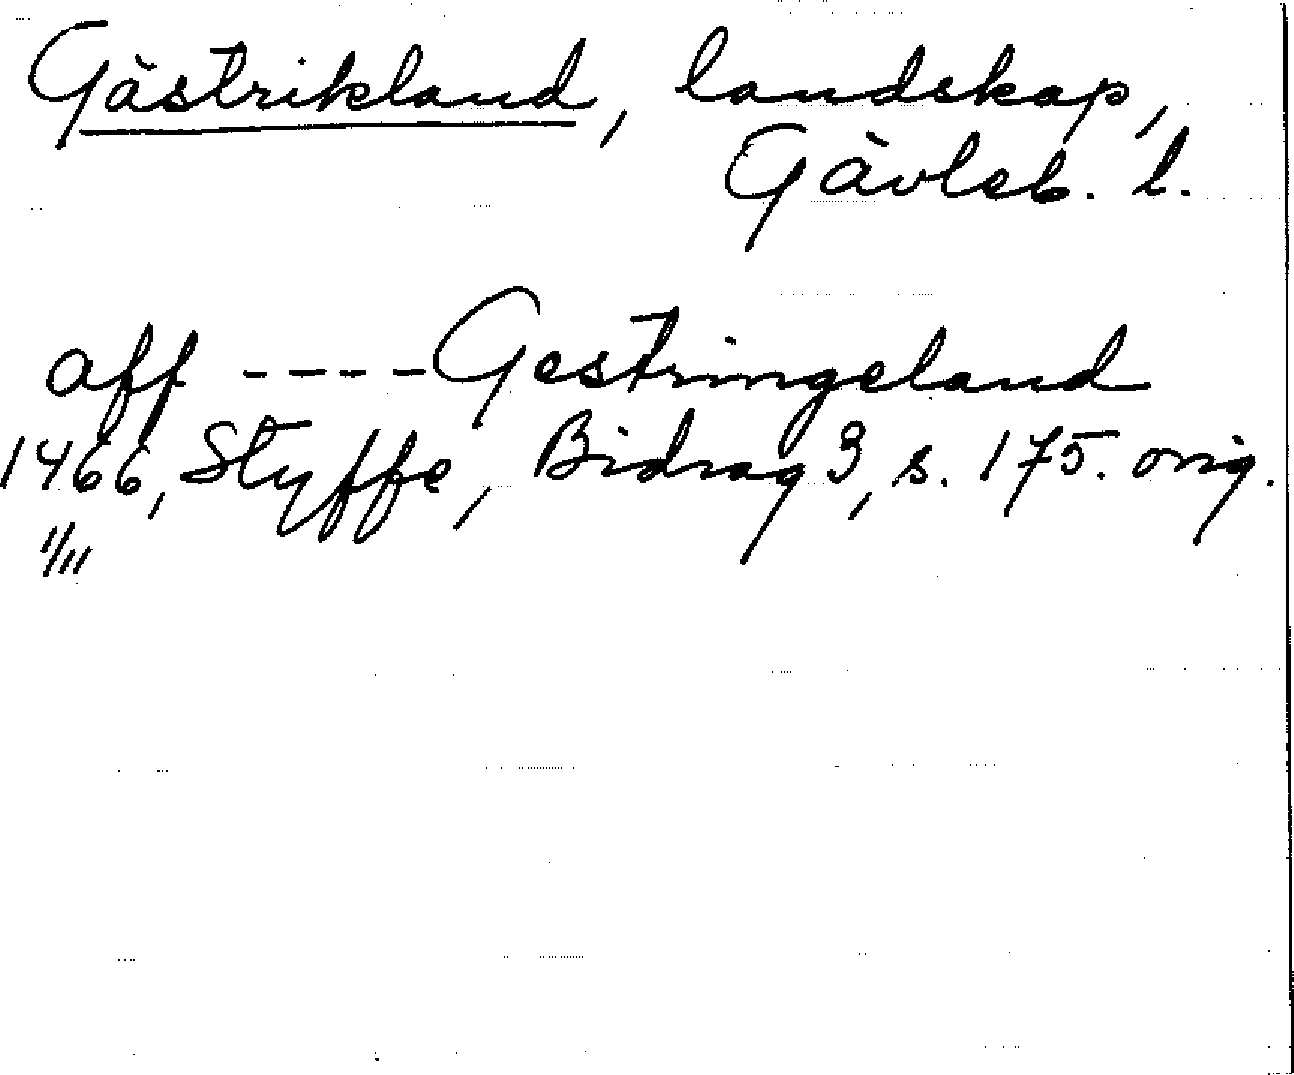 Gästrikland, landskap,
Gävleb. l.
aff ---- Gestringeland
1466, Styffe, Bidrag 3, s. 175. orig.
1/11